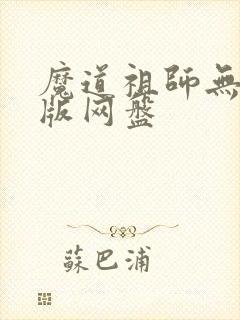 魔道祖師無
版网盤
蘇巴浦